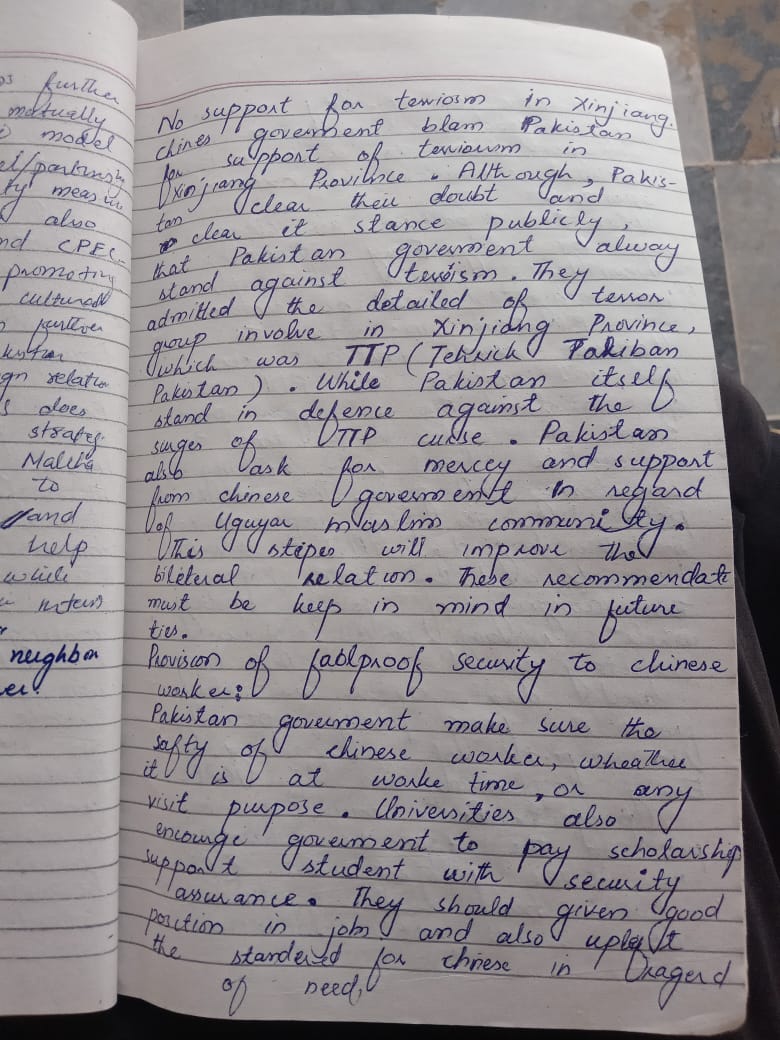 os further
matually
model
et/partnrsh
ty measur
also
nd CPEC-
promoting
cultural
further
gn relation
s does
strateg
Malcha
To
and
help
which
neighbor
er.
No support for terriosm in Xinjiang.
chines goverment blam Pakistan
for support of terriosum in
Xinjiang Provilnce. Although, Pakis-
tan clear their doubt and
clear it stance publicly,
that Pakistan goverment alway
stand against terroism. They
admitted the detailed of terror
group involve in Xinjiang Province,
which was TTP (Tehrick Taliban
Pakistan). While Pakistan itself
stand in defence against the
surges of TTP curse. Pakistan
also ask for mercey and support
from chinese goverment in regard
of Uguyar muslim community.
This stepes will improve the
bileteral relation. These recommendate
must be keep in mind in future
ties.
Provison of foolproof security to chinese
worker:
Pakistan goverment make sure the
safty of chinese worker, wheather
it is at worke time, or any
visit purpose. Universities also
encourge goverment to pay scholarship
support student with security
assurance. They should given good
position in job and also uplift
the standered for chinese in regard
of need,